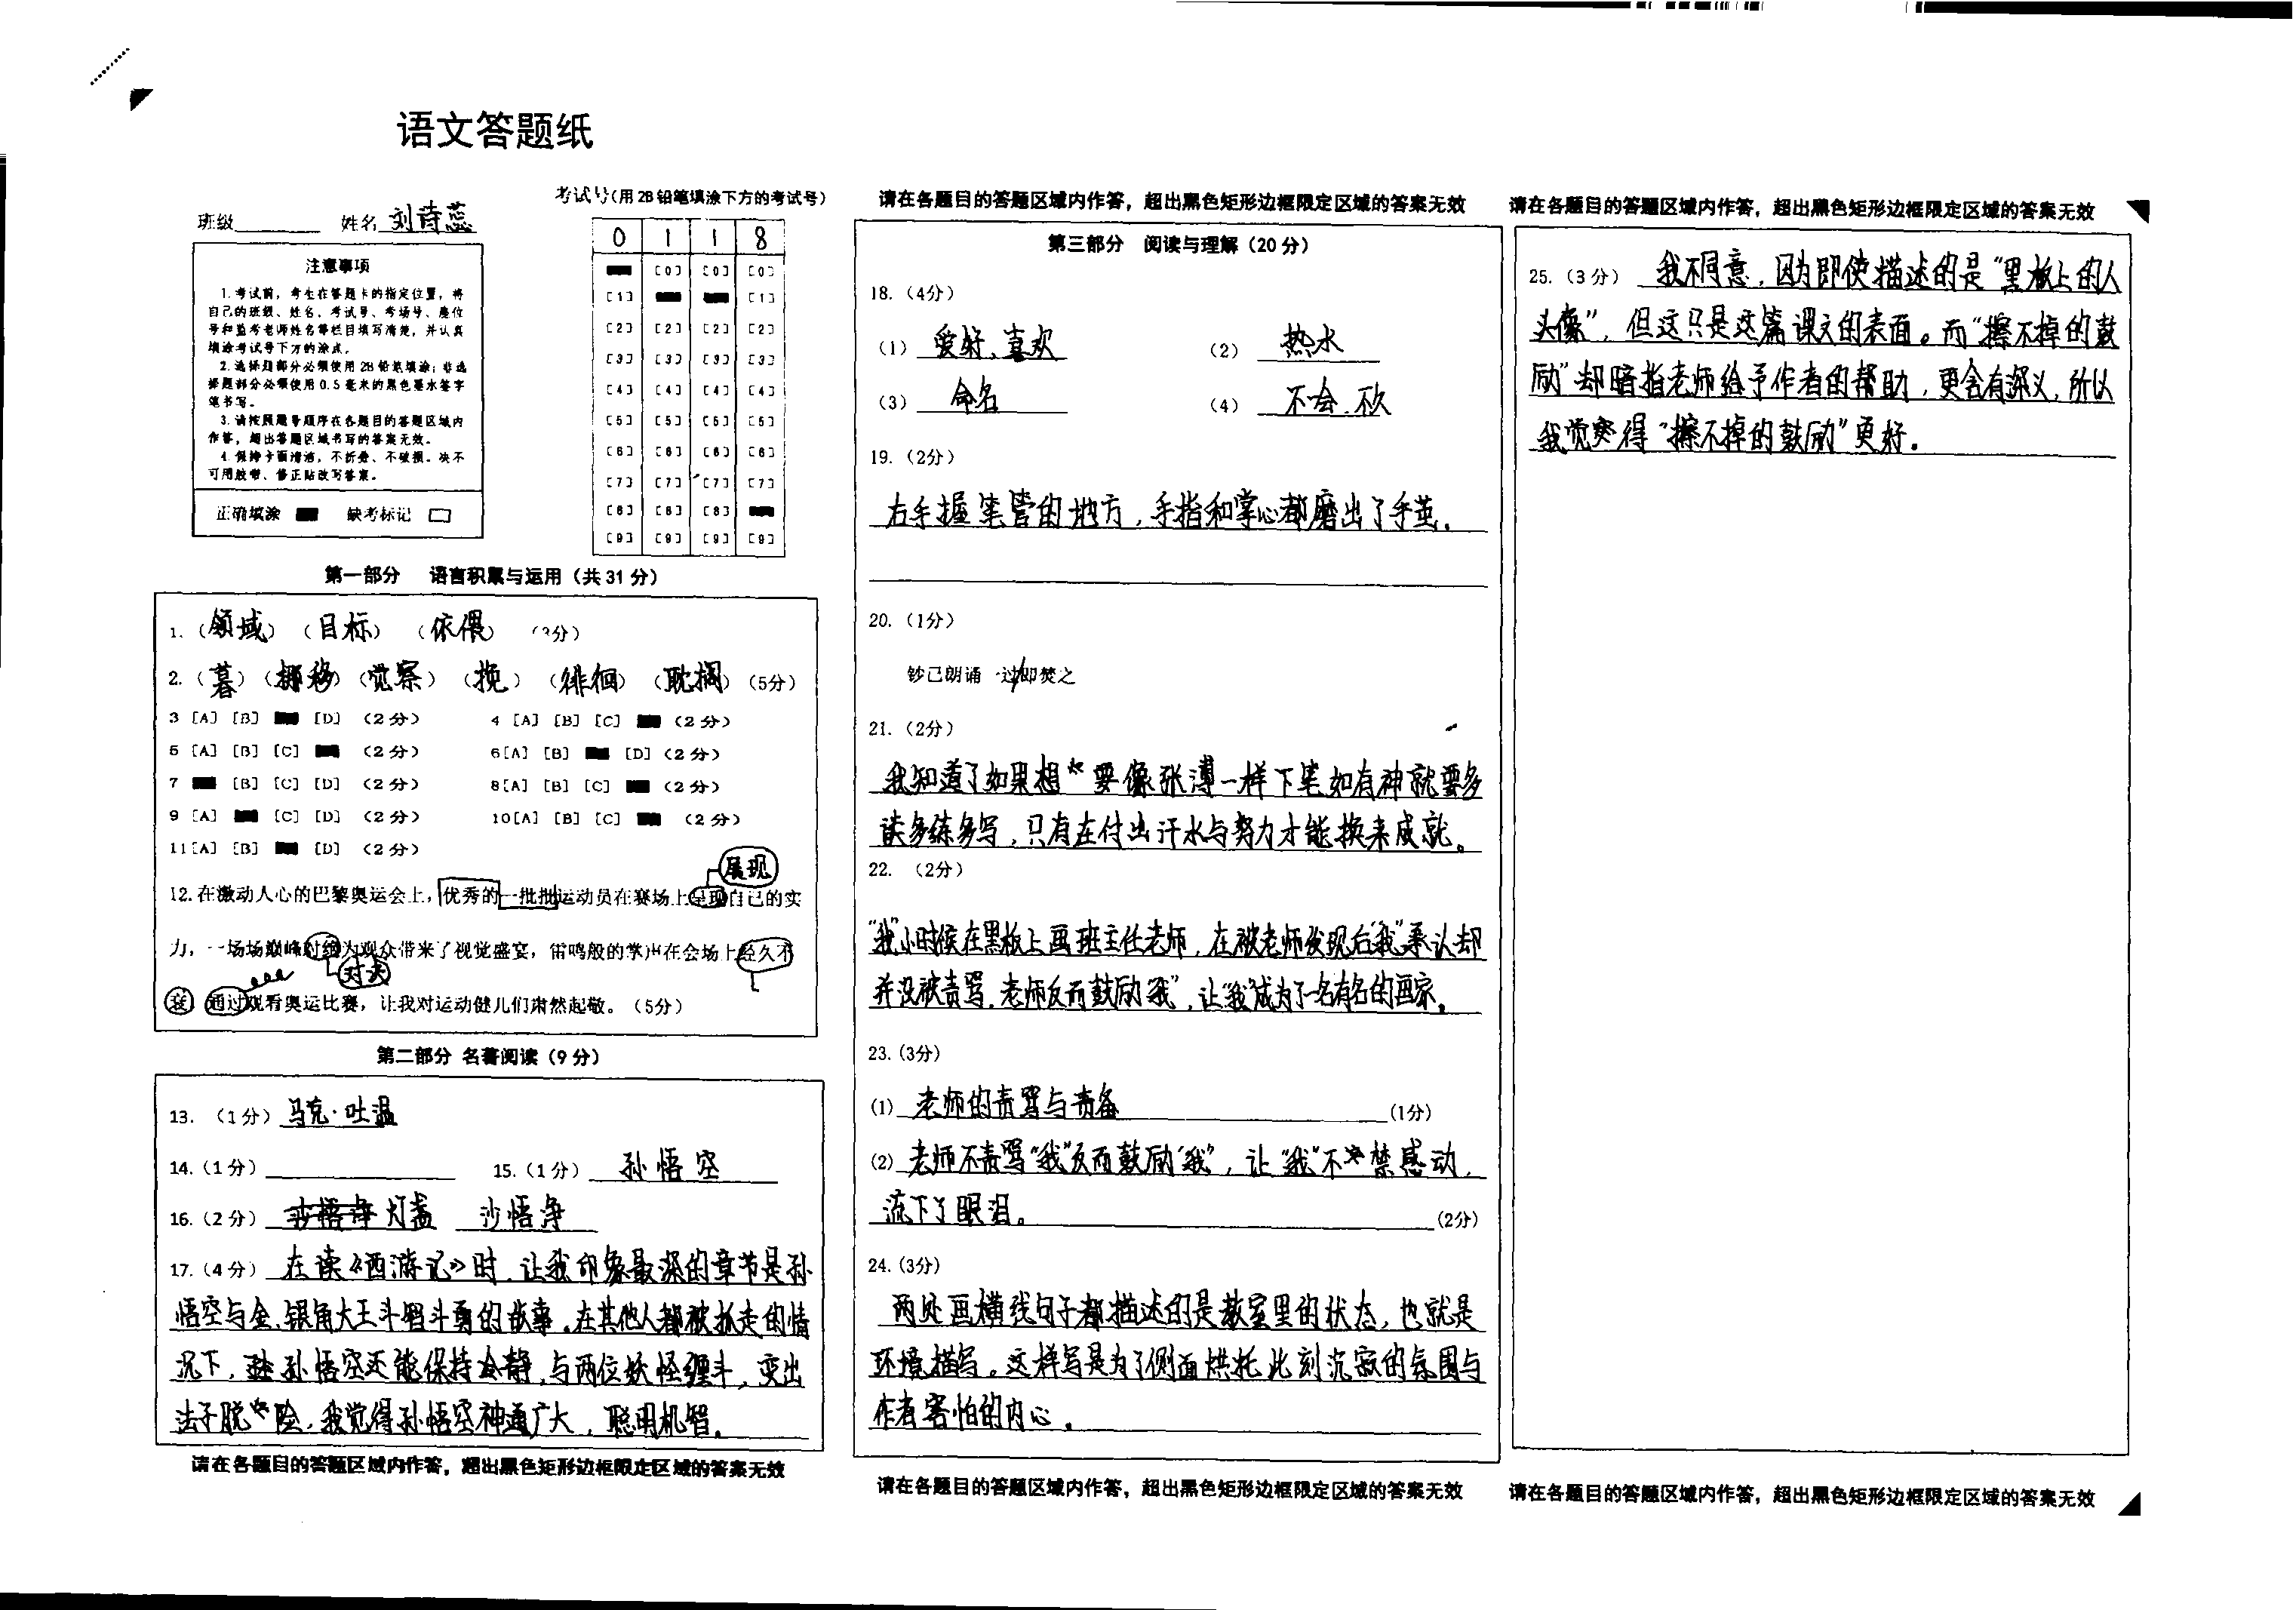 语文答题纸
班级 姓名 刘诗蕊
考试号(用 2B 铅笔填涂下方的考试号)
0 1 1 8
注意事项
1.考试前，考生在答题卡的指定位置，将
自己的班级、姓名、考试号、考场号、座位
号和监考老师姓名等栏目填写清楚，并认真
填涂考试号下方的涂点。
2.选择题部分必须使用 2B 铅笔填涂；非选
择题部分必须使用 0.5 毫米的黑色墨水签字
笔书写。
3.请按照题号顺序在各题目的答题区域内
作答，超出答题区域书写的答案无效。
4.保持卡面清洁，不折叠、不破损。决不
可用胶带、修正贴改写答案。
正确填涂 缺考标记
[0] [0] [0]
[1] [1]
[2] [2] [2] [2]
[3] [3] [3] [3]
[4] [4] [4] [4]
[5] [5] [5] [5]
[6] [6] [6] [6]
[7] [7] [7] [7]
[8] [8] [8]
[9] [9] [9] [9]
第一部分 语言积累与运用（共 31 分）
1.（领域）（目标）（依偎）（3分）
2.（暮）（挪移）（觉察）（挽）（徘徊）（耽搁）（5分）
3 [A] [B] [D] （2 分） 4 [A] [B] [C] （2 分）
5 [A] [B] [C] （2 分） 6[A] [B] [D]（2 分）
7 [B] [C] [D] （2 分） 8[A] [B] [C] （2 分）
9 [A] [C] [D] （2 分） 10[A] [B] [C] （2 分）
11[A] [B] [D] （2 分）
展现
12.在激动人心的巴黎奥运会上，优秀的一批批运动员在赛场上呈现自己的实
力，一场场巅峰对绝为观众带来了视觉盛宴，雷鸣般的掌声在会场上经久不
对决
衰 通过观看奥运比赛，让我对运动健儿们肃然起敬。（5分）
第二部分 名著阅读（9 分）
13. （1 分）马克·吐温
14.（1 分） 15.（1 分） 孙悟空
16.（2 分） 沙悟净 灯盏 沙悟净
17.（4 分） 在读《西游记》时，让我印象最深的章节是孙
悟空与金、银角大王斗智斗勇的故事。在其他人都被抓走的情
况下，孙悟空还能保持冷静，与两位妖怪缠斗，变出
法子脱险，我觉得孙悟空神通广大，聪明机智。
请在各题目的答题区域内作答，超出黑色矩形边框限定区域的答案无效
请在各题目的答题区域内作答，超出黑色矩形边框限定区域的答案无效
第三部分 阅读与理解（20 分）
18.（4分）
（1） 爱好、喜欢 （2） 热水
（3） 命名 （4） 不会、不欠
19.（2分）
右手握笔管的地方，手指和掌心都磨出了手茧。
20.（1分）
钞已朗诵一过/即焚之
21.（2分）
我知道了如果想要像张溥一样下笔如有神就要多
读多练多写，只有在付出汗水与努力才能换来成就。
22. （2分）
“我”小时候在黑板上画班主任老师，在被老师发现后“我”承认却
并没被责骂，老师反而鼓励“我”，让“我”成为了一名有名的画家。
23.(3分)
(1) 老师的责骂与责备 (1分)
(2) 老师不责骂“我”反而鼓励“我”，让“我”不禁感动，
流下了眼泪。 (2分)
24.(3分)
两处画横线句子都描述的是教室里的状态，也就是
环境描写。这样写是为了侧面烘托此刻沉寂的氛围与
作者害怕的内心。
请在各题目的答题区域内作答，超出黑色矩形边框限定区域的答案无效
请在各题目的答题区域内作答，超出黑色矩形边框限定区域的答案无效
25.（3 分） 我不同意，因为即使描述的是“黑板上的人
头像”，但这只是这篇课文的表面。而“擦不掉的鼓
励”却暗指老师给予作者的帮助，更含有深义，所以
我觉得“擦不掉的鼓励”更好。
请在各题目的答题区域内作答，超出黑色矩形边框限定区域的答案无效